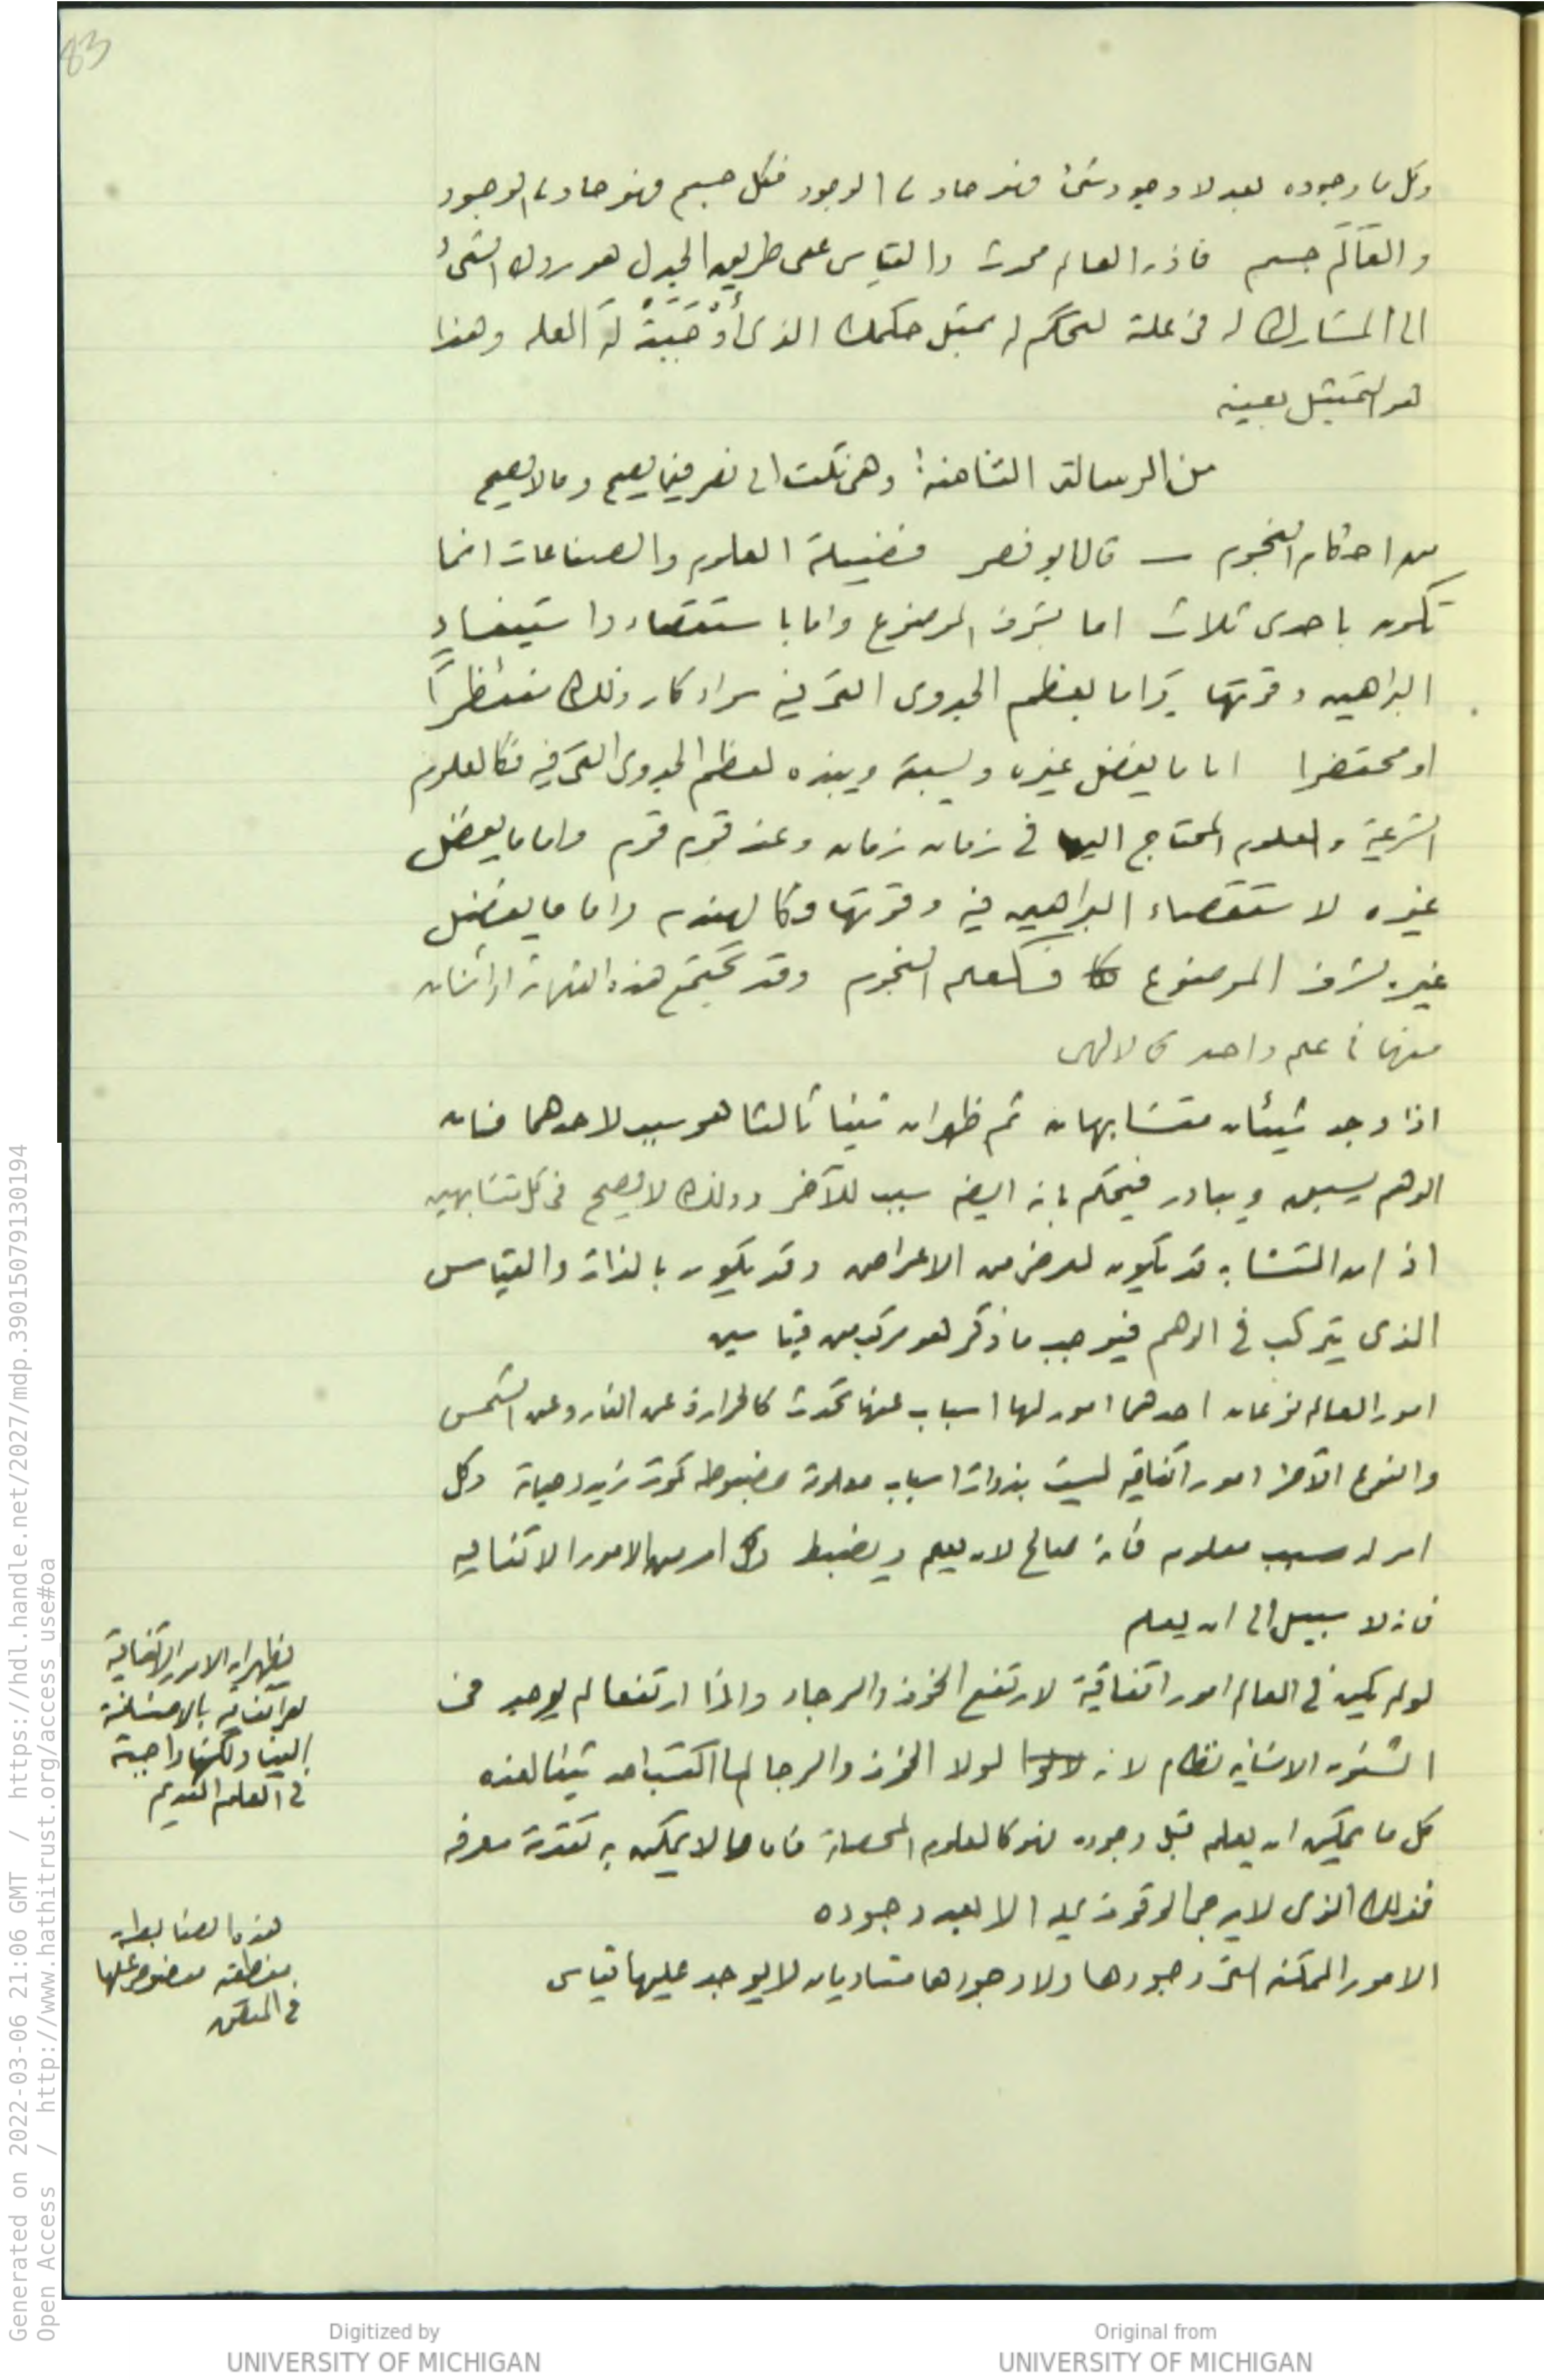 83
وكل ما وجوده بعد لا وجود شئ فهو حادث الوجود فكل جسم فهو حادث الوجود
والعالَم جسم فاذن العالم محدث والقياس على طريق الجدل هو ردك الشئ
الى المشارك له فى علة لتحكم له بمثل حكمك الذى أوْجَبَتهُ له العله وهذا
هو التمثيل بعينه
من الرسالة الثامنة: وهى نكت ابى نصر فيما يصح وما لا يصح
من احكام النجوم — قال ابو نصر فضيلة العلوم والصناعات انما
تكون باحدى ثلاث اما بشرف الموضوع واما باستقصاء واستيفاء
البراهين وقوتها واما بعظم الجدوى التى فيه سواء كان ذلك منتظرًا
او محتضرا اما ما يفضل غيره ويسبقه ويبذه لعظم الجدوى التى فيه فكالعلوم
الشرعية والعلوم المحتاج اليها فى زمان زمان وعند قوم قوم واما ما يفضل
غيره لاستقصاء البراهين فيه وقوتها فكالهندسة واما ما يفضل
غيره لشرف الموضوع فكعلم النجوم وقد تجتمع هذه الثلاثة او اثنان
منها فى علم واحد كالالهى
اذا وجد شيئان متشابهان ثم ظهر ان شيئا ثالثا هو سبب لاحدهما فان
الوهم يسبق ويبادر فيحكم بانه ايضا سبب للآخر وذلك لا يصح فى كل متشابهين
اذ ان التشابه قد يكون لعرض من الاعراض وقد يكون بالذات والقياس
الذى يتركب فى الوهم فيوجب ما ذكر هو مركب من قياسين
امور العالم نوعان احدهما امور لها اسباب عنها تحدث كالحرارة عن النار وعن الشمس
والنوع الآخر امور اتفاقيه ليست بذوات اسباب معلومة مضبوطه كموت زيد وحياة وكل
امر له سبب معلوم فانه صالح لان يعلم ويضبط وكل امر من الامور الاتفاقيه
فانه لا سبيل الى ان يعلم
لو لم يكن فى العالم امور اتفاقية لارتفع الخوف والرجاء واذا ارتفعا لم يوجد فى
الشئون الانسانيه نظام لانه لولا الخوف والرجا لما اكتسب احد شيئا لغده
كل ما يمكن ان يعلم قبل وجوده فهو كالعلوم المحصلة فاما ما لا يمكن به تقدمة معرفه
فذلك الذى لا يرجى الوقوف عليه الا بعد وجوده
الامور الممكنه التى وجودها ولا وجودها متساويان لا يوجد عليها قياس
يظهر ان الامور الاتفاقية
هى اتفاقيه بالاضافة
الينا ولكنها واجبة
فى العلم القديم
هذه الضابطة
منطقيه منصوص عليها
فى
Generated on 2022-03-06 21:06 GMT / https://hdl.handle.net/2027/mdp.39015079130194
Open Access / http://www.hathitrust.org/access_use#oa
Digitized by
UNIVERSITY OF MICHIGAN
Original from
UNIVERSITY OF MICHIGAN